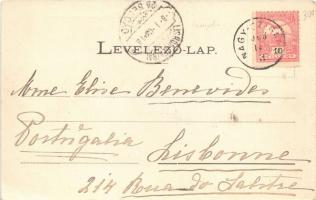 LEVELEZŐ-LAP.
NAGY-
Mme Elise Benevides
Portugalia
Lisbonne
214 Rua do Salitre